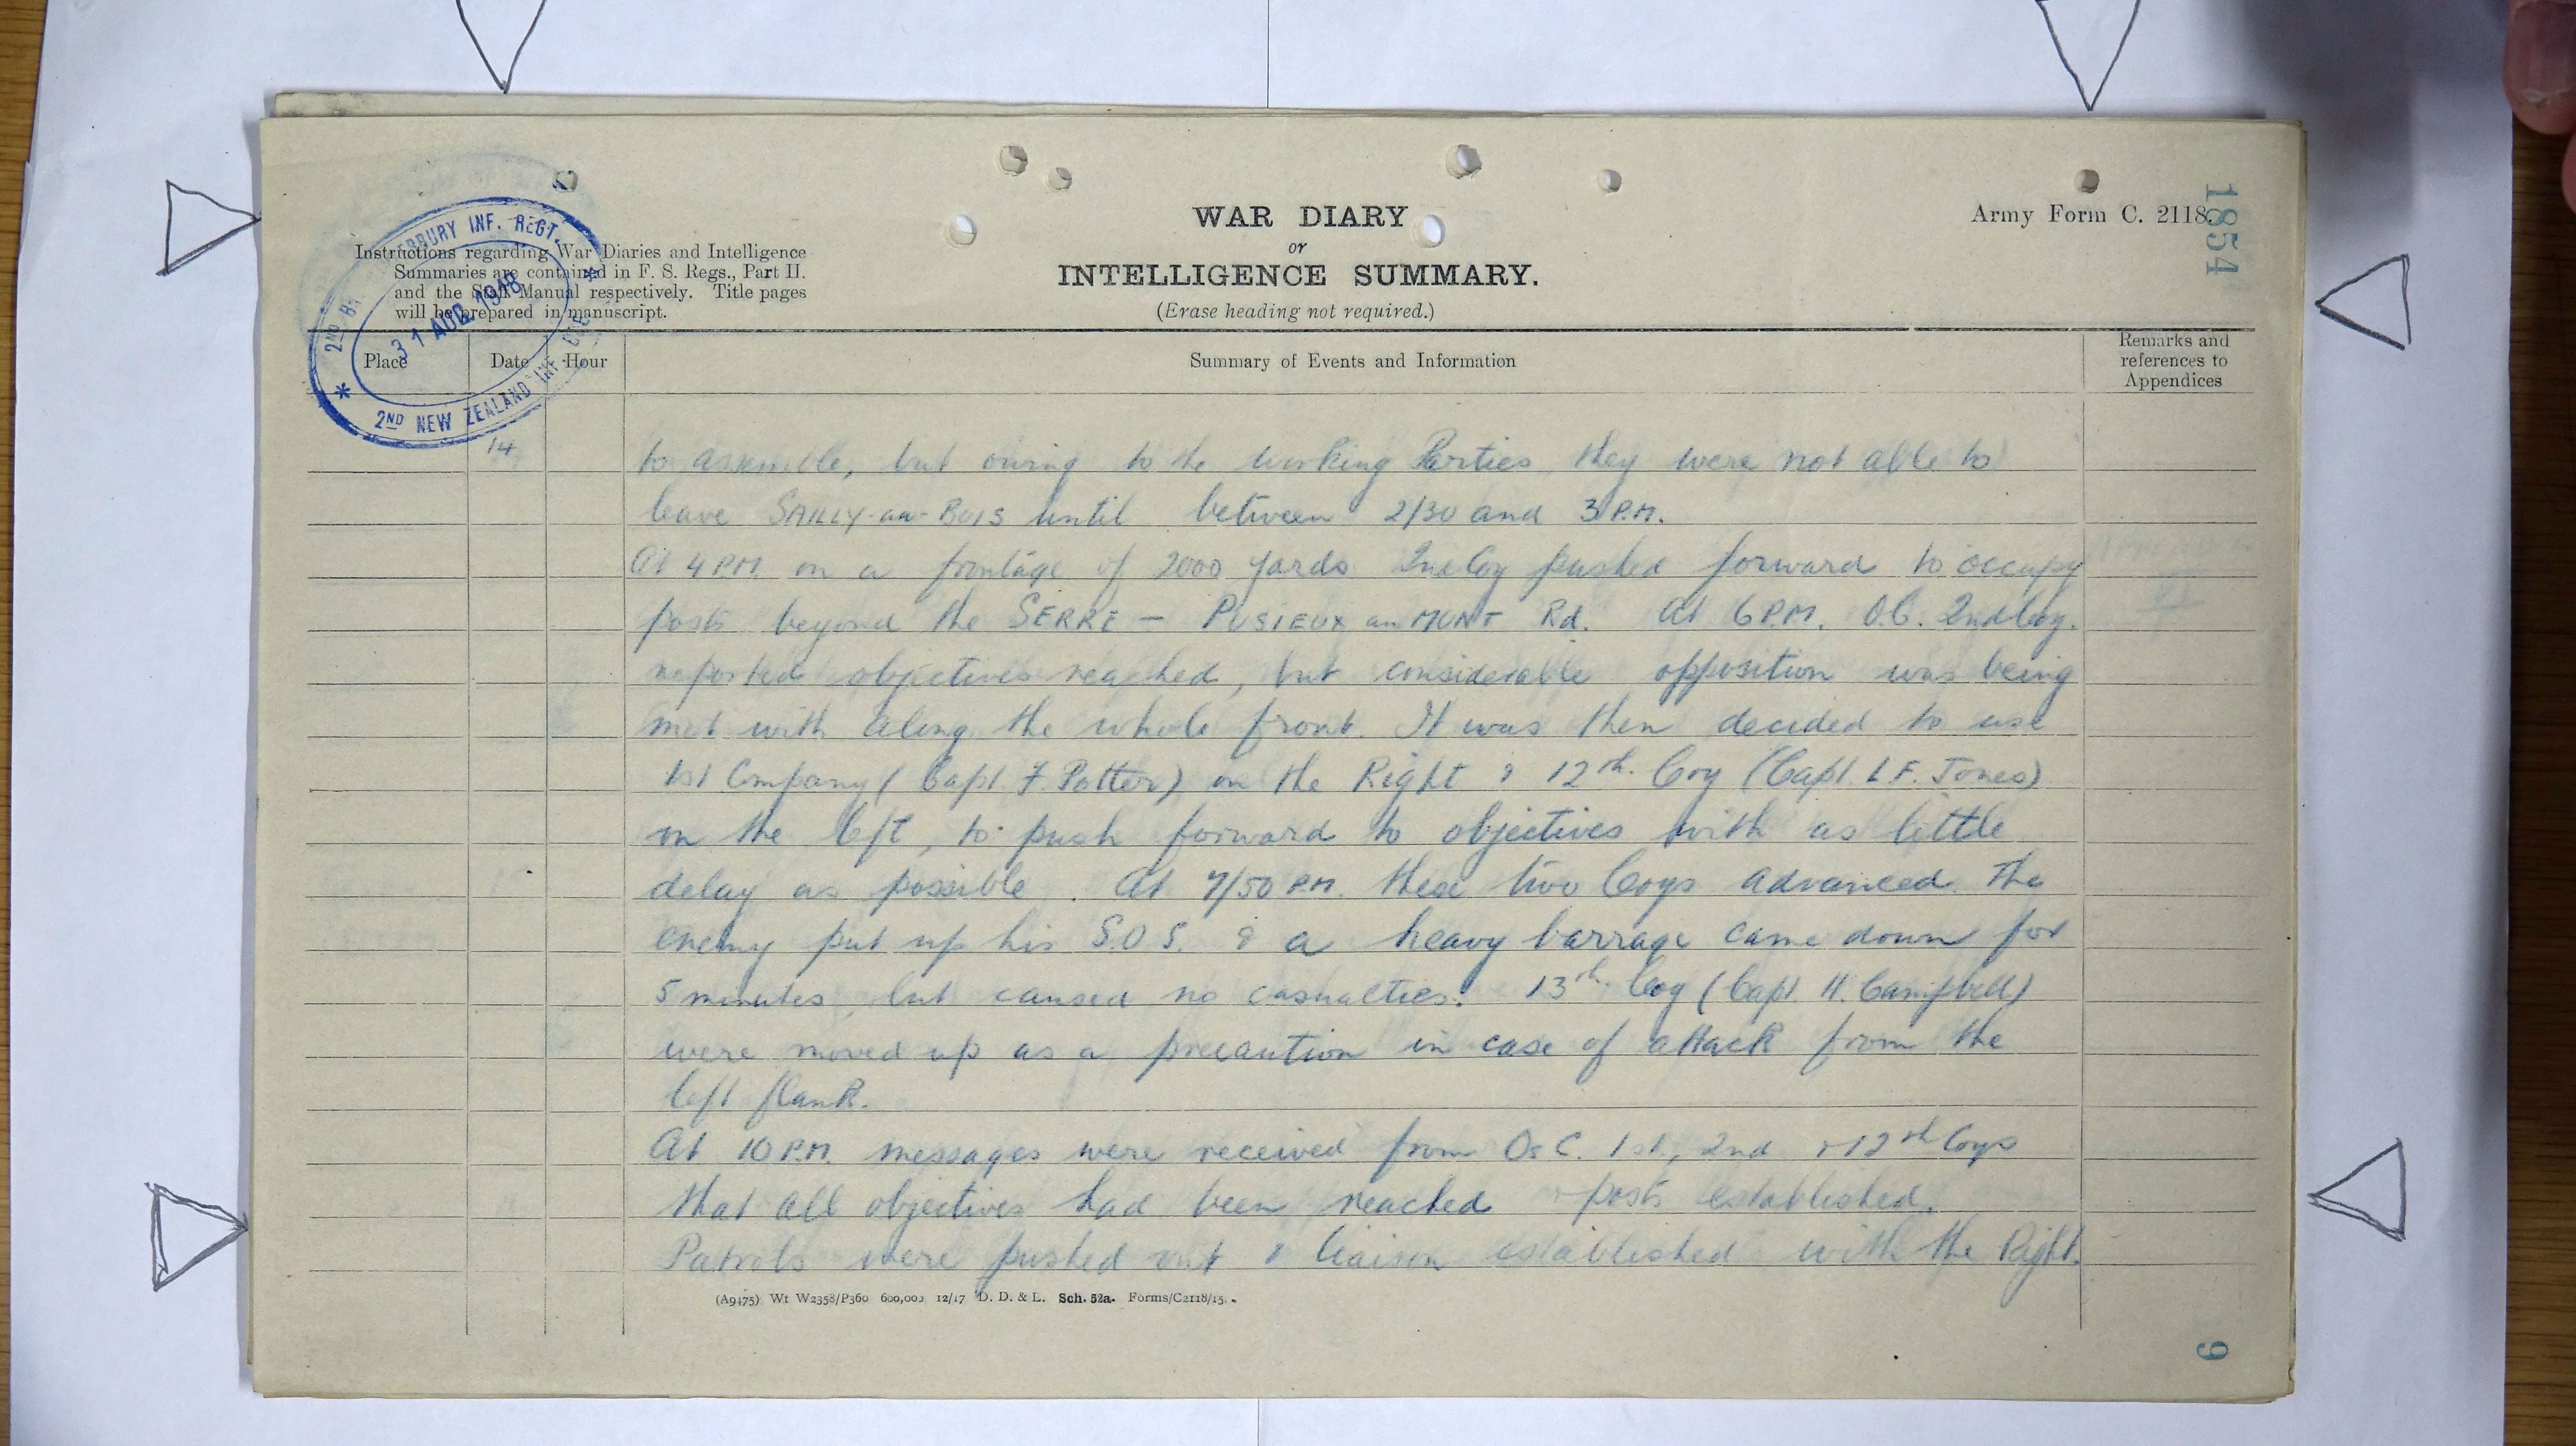 WAR DIARY
or
INTELLIGENCE SUMMARY.
(Erase heading not required.)
Army Form C. 2118.
1854
Instructions regarding War Diaries and Intelligence
Summaries are contained in F. S. Regs., Part II.
and the Staff Manual respectively. Title pages
will be prepared in manuscript.
2ND NEW ZEALAND INF
INF. REGT.
31 AUG 1918
Place
Date
Hour
Summary of Events and Information
Remarks and
references to
Appendices
14
to assemble, but owing to the working Parties they were not able to
leave SAILLY-au-BOIS until between 2/30 and 3 P.M.
At 4 P.M. on a frontage of 2000 yards 2nd Coy pushed forward to occupy
posts beyond the SERRE — PUSIEUX au MONT Rd. At 6 P.M. O.C. 2nd Coy.
reported objectives reached, but considerable opposition was being
met with along the whole front. It was then decided to use
1st Company (Capt. F. Potter) on the Right & 12th. Coy (Capt. L F. Jones)
on the left, to push forward to objectives with as little
delay as possible. At 7/50 P.M. these two Coys advanced. The
enemy put up his S.O.S. & a heavy barrage came down for
5 minutes, but caused no casualties. 13th. Coy (Capt. H. Campbell)
were moved up as a precaution in case of attack from the
left flank.
At 10 P.M. messages were received from Os C. 1st, 2nd & 12th Coys
that all objectives had been reached posts established.
Patrols were pushed out & liaison established with the Right.
(A9475) Wt W2358/P360 600,000 12/17 D. D. & L. Sch. 52a. Forms/C2118/15.
9